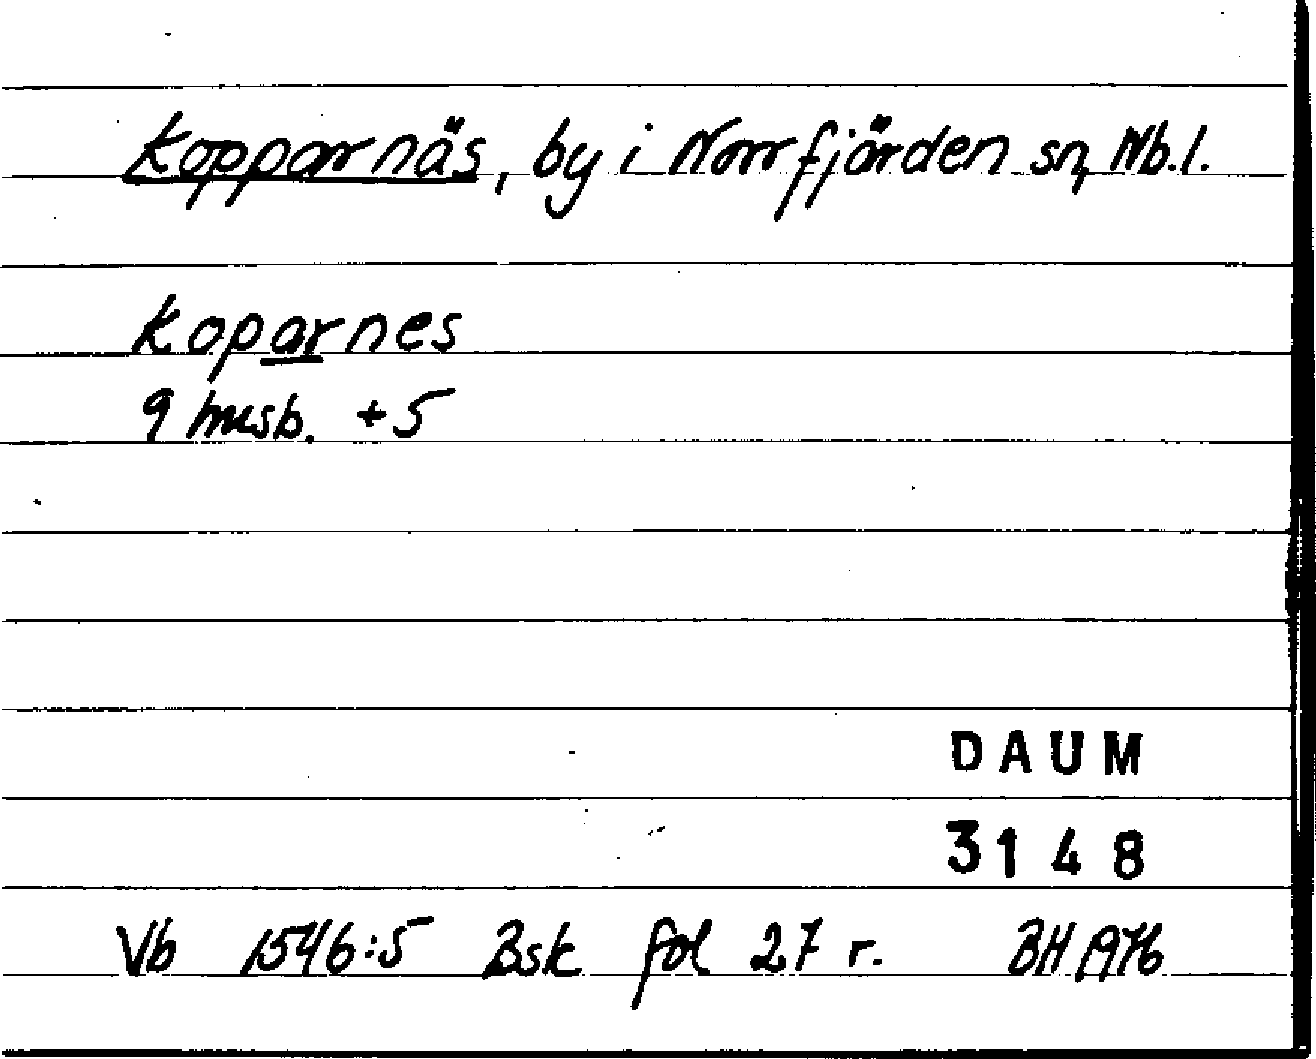 Kopparnäs, by i Norrfjärden sn, Nb.l.
Koparnes
9 husb. + 5
DAUM
3148
Vb 1546:5 Bsk fol 27 r. BH 1976